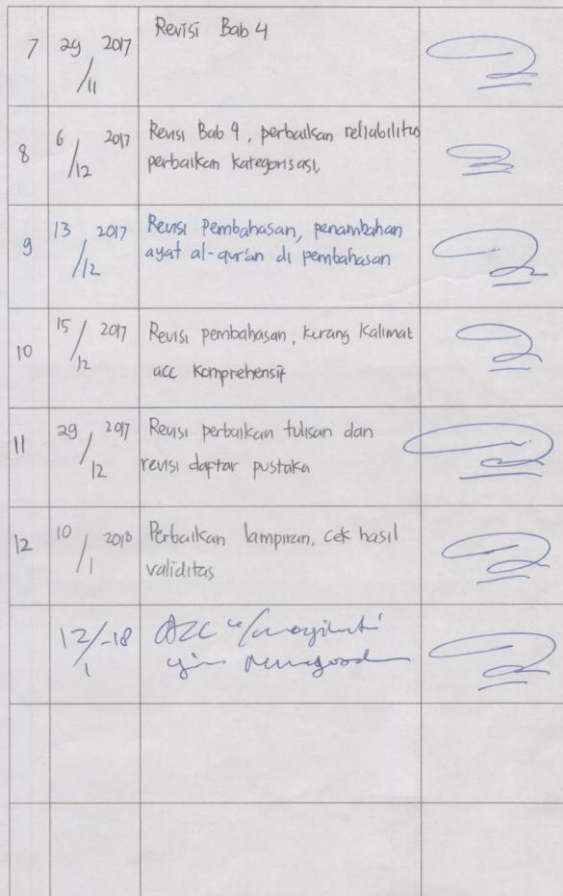 7 29/11 2017 Revisi Bab 4
8 6/12 2017 Revisi Bab 4, perbaikan reliabilitas
perbaikan kategorisasi,
9 13/12 2017 Revisi Pembahasan, penambahan
ayat al-qur'an di pembahasan
10 15/12 2017 Revisi pembahasan, kurang kalimat
acc komprehensif
11 29/12 2017 Revisi perbaikan tulisan dan
revisi daftar pustaka
12 10/1 2018 Perbaikan lampiran, cek hasil
validitas
12/1-18 ACC